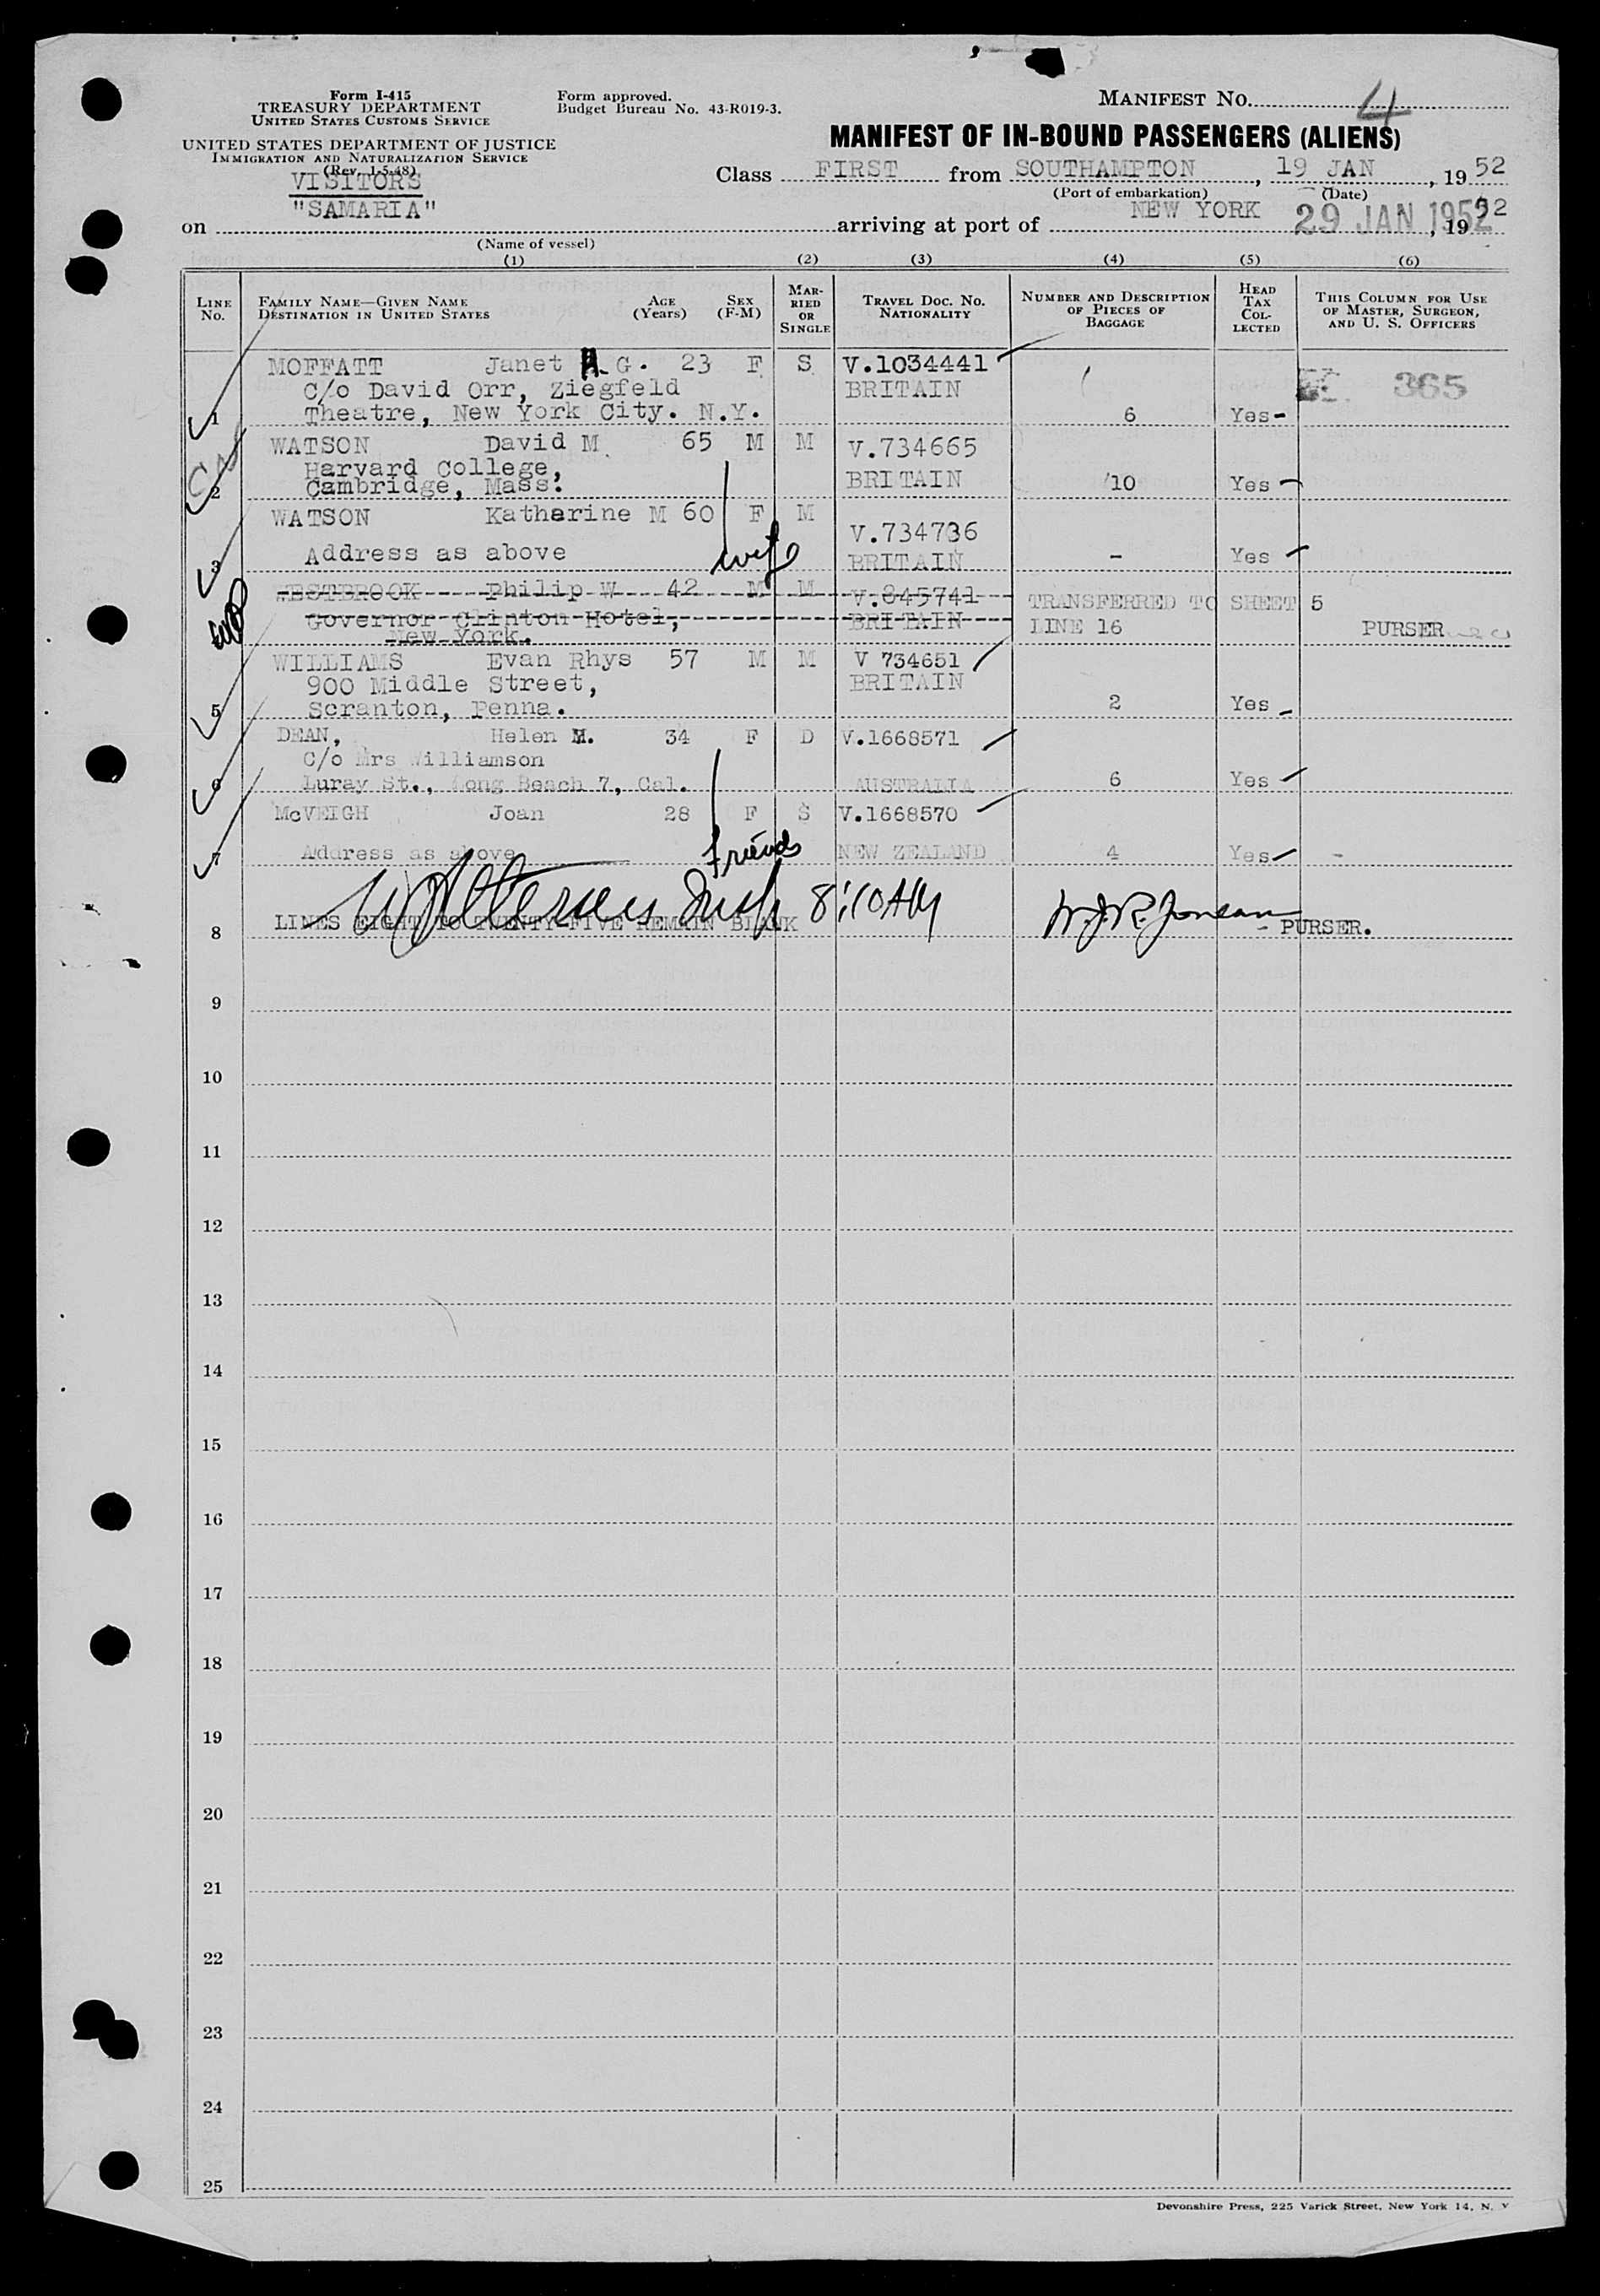 Form I-415
TREASURY DEPARTMENT
UNITED STATES CUSTOMS SERVICE
UNITED STATES DEPARTMENT OF JUSTICE
IMMIGRATION AND NATURALIZATION SERVICE
(Rev. 1-5-48)
Form approved.
Budget Bureau No. 43-R019-3.
MANIFEST NO. 4
MANIFEST OF IN-BOUND PASSENGERS (ALIENS)
VISITORS
Class FIRST from SOUTHAMPTON, 19 JAN, 1952
(Port of embarkation) (Date)
on "SAMARIA" arriving at port of NEW YORK 29 JAN 1952, 1952
(Name of vessel)
(1) (2) (3) (4) (5) (6)
LINE NO. FAMILY NAME—GIVEN NAME DESTINATION IN UNITED STATES AGE (Years) SEX (F-M) MARRIED OR SINGLE TRAVEL DOC. NO. NATIONALITY NUMBER AND DESCRIPTION OF PIECES OF BAGGAGE HEAD TAX COLLECTED THIS COLUMN FOR USE OF MASTER, SURGEON, AND U. S. OFFICERS
MOFFATT Janet A. G. 23 F S V.1034441
C/o David Orr, Ziegfeld BRITAIN 365
1 Theatre, New York City. N.Y. 6 Yes-
WATSON David M. 65 M M V.734665
Harvard College,
2 Cambridge, Mass. BRITAIN 10 Yes
WATSON Katharine M 60 F M V.734736
3 Address as above wife BRITAIN - Yes
WESTBROOK Philip W 42 M M V.845741 TRANSFERRED TO SHEET 5
Governor Clinton Hotel, BRITAIN LINE 16 PURSER
New York.
WILLIAMS Evan Rhys 57 M M V 734651
900 Middle Street, BRITAIN
5 Scranton, Penna. 2 Yes
DEAN, Helen M. 34 F D V.1668571
C/o Mrs Williamson
6 Luray St., Long Beach 7, Cal. AUSTRALIA 6 Yes
McVEIGH Joan 28 F S V.1668570
7 Address as above friends NEW ZEALAND 4 Yes -
8:10 AM
8 LINES EIGHT TO TWENTY-FIVE REMAIN BLANK - PURSER.
9
10
11
12
13
14
15
16
17
18
19
20
21
22
23
24
25
Devonshire Press, 225 Varick Street, New York 14, N. Y